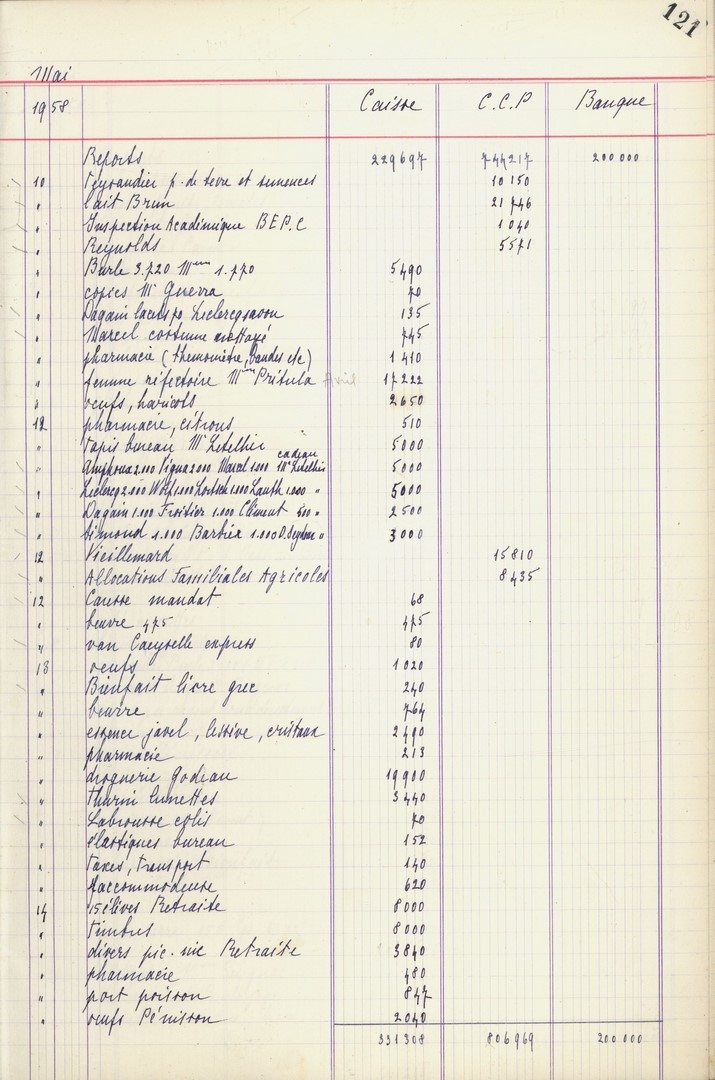 121
Mai
1958 Caisse C.C.P Banque
Reports 229697 744217 200000
10 Teyrandier p. de terre et semences 10150
" lait Brun 21746
" Inspection Académique B.E.P.C 1040
" Reynolds 5571
" Burle 3.720 Mme 1.770 5490
" copies Mr Guerra 70
" Dagain lacets po Leclercq savon 135
" Marcel costume nettoyé 745
" pharmacie (thermomètre, bandes etc) 1410
" femme réfectoire Mme Pritula Avril 17222
" oeufs, haricots 2650
12 pharmacie, citrons 510
" tapis bureau Mr Letellier 5000
" Amphoux 2.000 Vigua 2000 Marcel 1.000 cadeau Mr Letellier 5000
" Leclercq 2.000 Wolf 1.000 1.000 Lauth 1.000 " 5000
" Dagain 1.000 Froitier 1.000 Clément 500 " 2500
" Simond 1.000 Barbier 1.000 " 3000
12 Vieillemard 15810
" Allocations Familiales Agricoles 8435
12 Caresse mandat 68
" beurre 475 475
" van Caeyselle express 80
13 oeufs 1020
" Bienfait livre grec 240
" beurre 764
" essence, javel, lessive, cristaux 2490
" pharmacie 213
" droguerie Godeau 19900
" Thurin lunettes 3440
" Labrousse colis 70
" élastiques bureau 152
" taxes, transport 140
" Raccommodeuse 620
14 15 élèves Retraite 8000
" timbres 8000
" divers pic-nic Retraite 3840
" pharmacie 480
" port poisson 847
" oeufs Pénisson 2040
331308 806969 200000